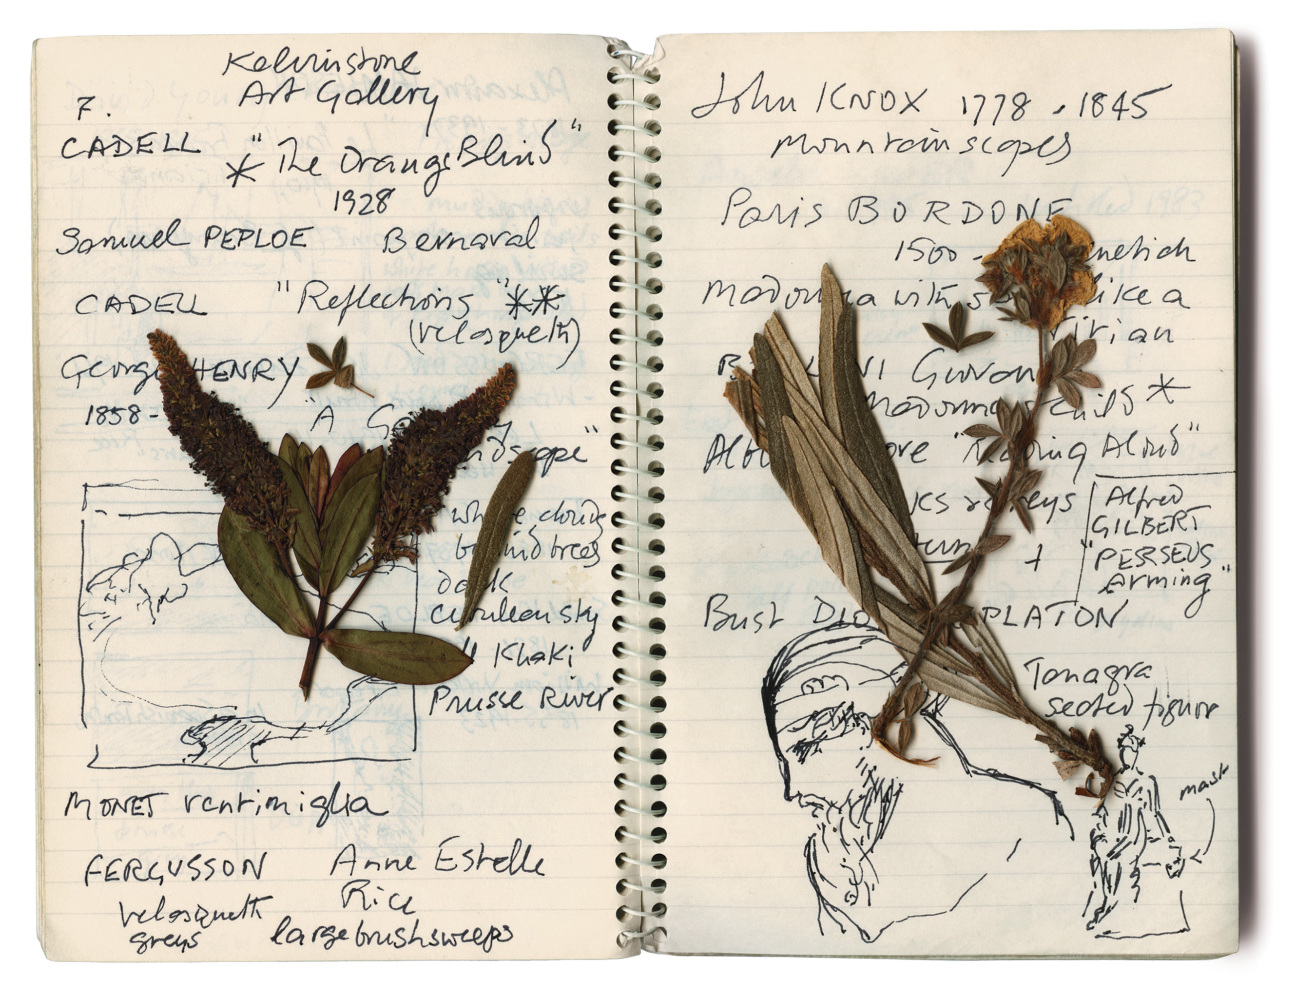 Kelvinstone
Art Gallery
F.
CADELL
* "The Orange Blind"
1928
Samuel PEPLOE Bernaval
CADELL "Reflections" **
(velasqueth)
George HENRY
1858-
"A G
ndscape"
white clouds
behind trees
dark
cerulean sky
" Khaki
Prusse River
MONET ventimiglia
FERGUSSON Anne Estelle
Rice
velasqueth
greys
large brushsweeps
John KNOX 1778 - 1845
Mountainscapes
Paris BORDONE
1500 - netian
Madonna with s like a
Titian
B INI Giovan
Madonna child *
Alb ore "Reading Aloud"
+
Alfred
GILBERT
"PERSEUS
Arming"
Bust DIO PLATON
Tanagra
seated figure
mask